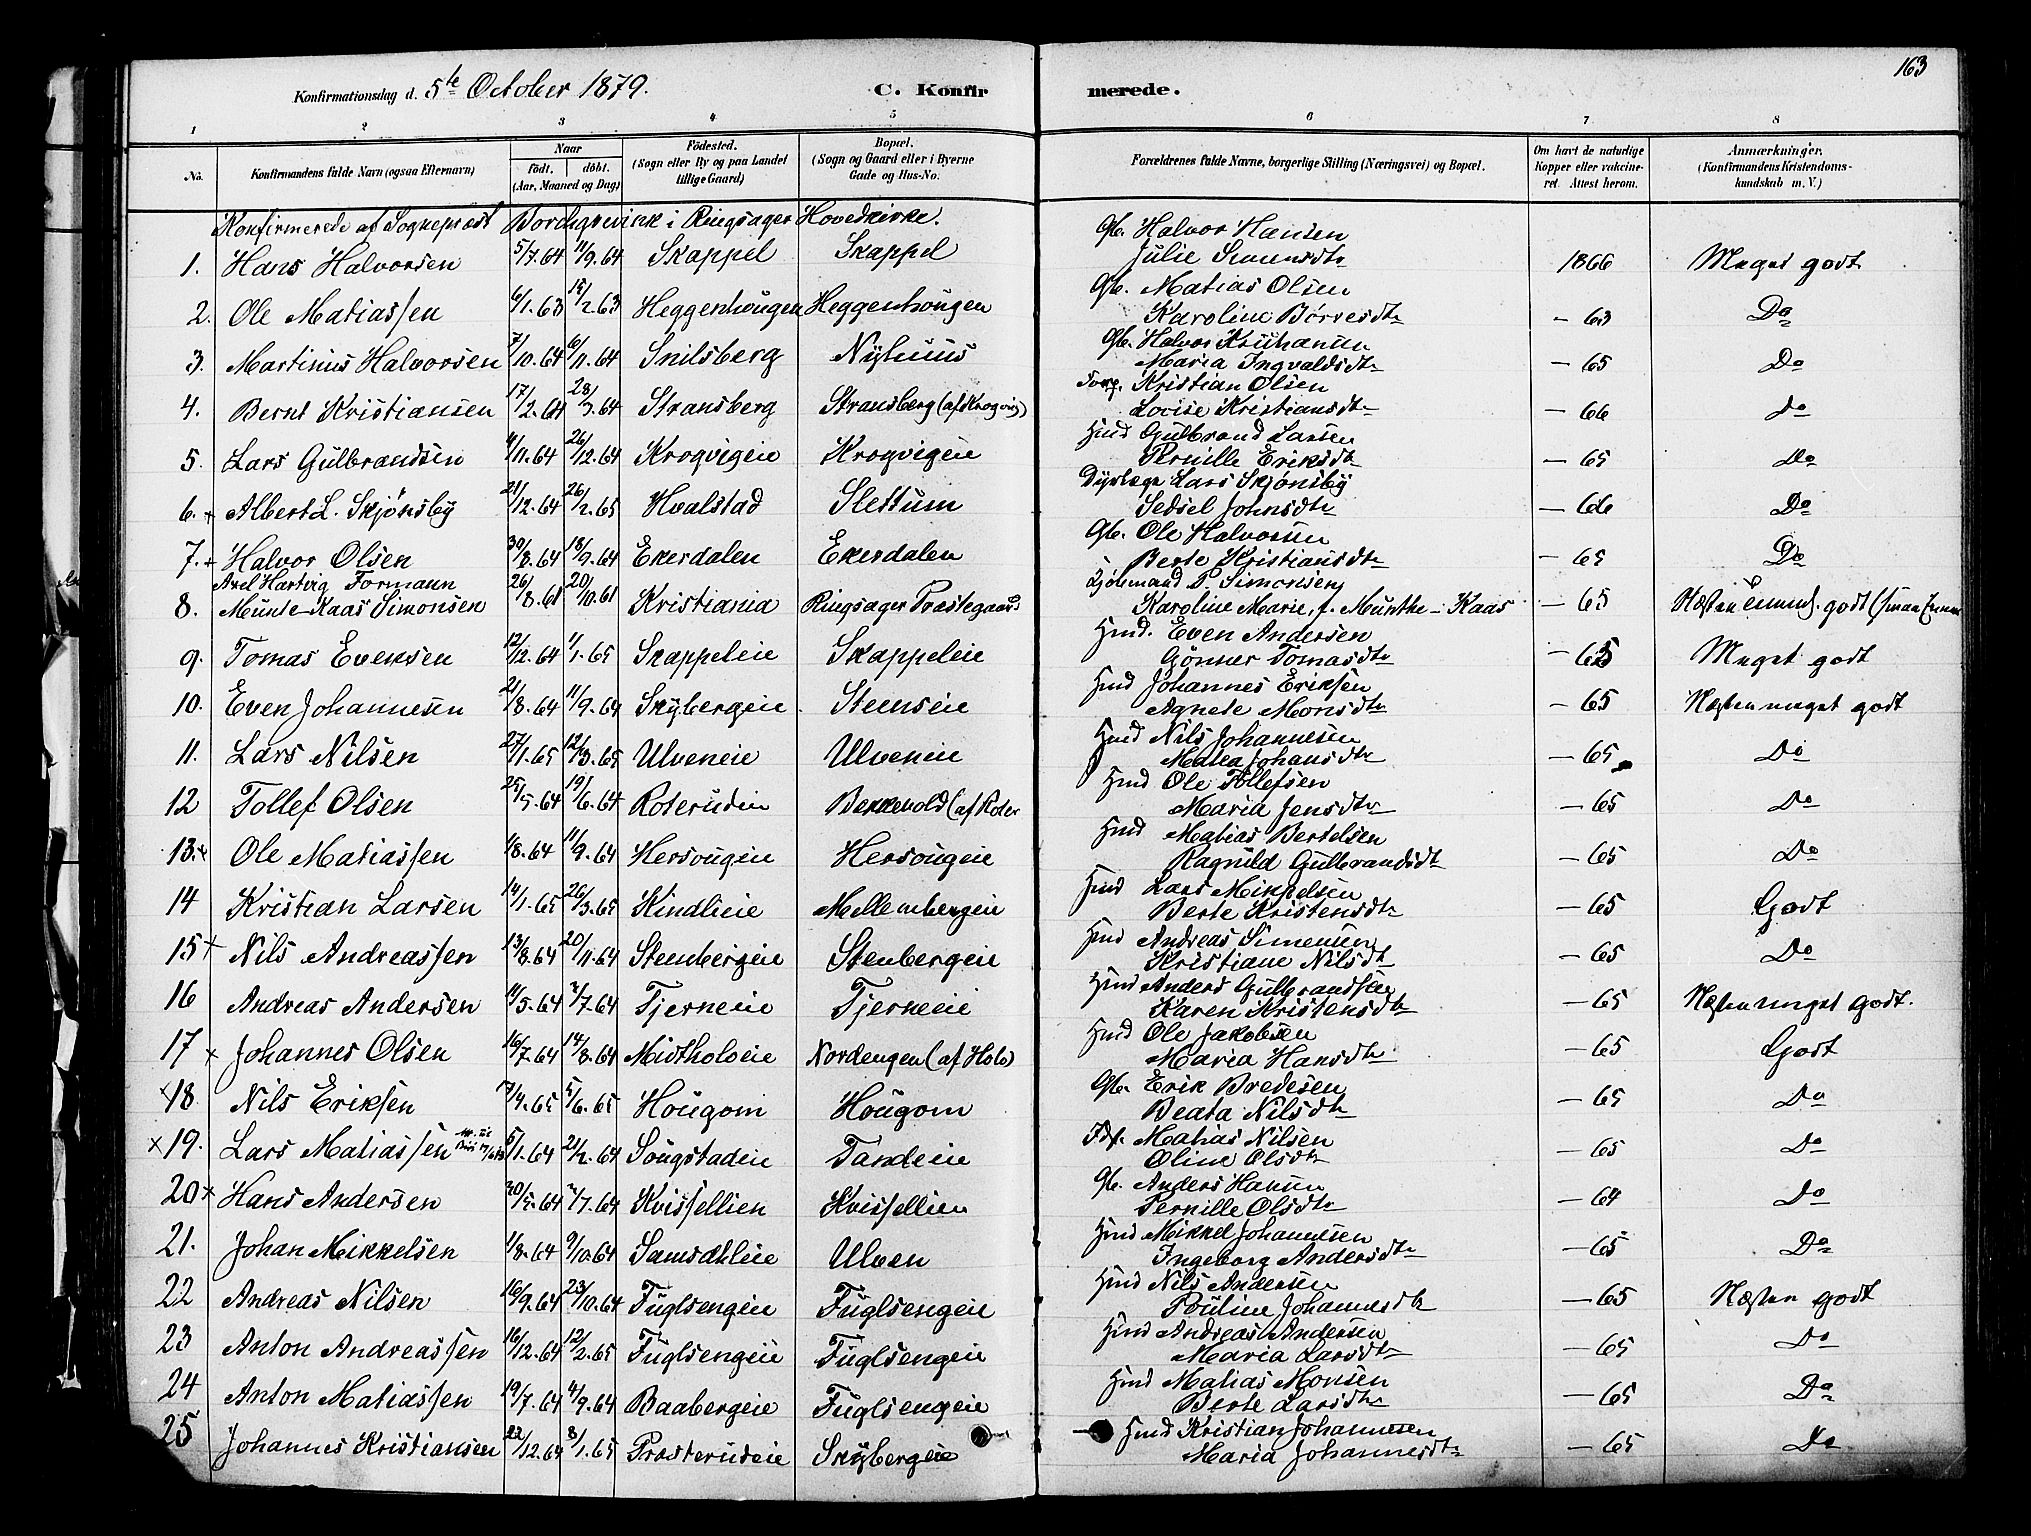 163
Konfirmationsdag d. 5te October 1879. C. Konfirmerede.
1 2 3 4 5 6 7 8
No. Konfirmandens fulde Navn (ogsaa Efternavn) Naar Født. døbt. (Aar, Maaned og Dag) Fødested. (Sogn eller By og paa Landet tillige Gaard) Bopæl. (Sogn og Gaard eller i Byerne Gade og Hus-No. Forældrenes fulde Navne, borgerlige Stilling (Næringsvei) og Bopæl. Om havt de naturlige Kopper eller vakcineret. Attest herom. Anmærkninger. (Konfirmandens Kristendomskundskab m. V.)
Konfirmerede af Sogneprest Borchgrevink i Ringsager Hovedkirke.
1. Hans Halvorsen 5/7.64 11/9.64 Skappel Skappel Gb. Halvor Hansen Julie Simensdtr 1866 Meget godt
2. Ole Matiassen 6/1.63 15/2.63 Heggenhougen Heggenhougen Gb. Matias Olsen Karoline Børresdtr - 63 Do
3. Martinus Halvorsen 7/10.64 6/11.64 Snilsberg Nyhuus Gb. Halvor Kristiansen Maria Ingvaldsdtr - 65 Do
4. Bernt Kristiansen 17/2.64 28/3.64 Stransberg Stransberg (af Krogvig) Kristian Olsen Lovise Kristiansdtr - 66 do
5. Lars Gulbrandsen 4/11.64 26/12.64 Krogvigeie Krogvigeie Hmd Gulbrand Larsen Pernille Eriksdtr - 65 Do
6. + Albert L. Skjønsby 21/12.64 26/2.65 Hvalstad Slettum Dyrlæge Lars Skjønsby Sedsel Johnsdtr - 66 Do
7. + Halvor Olsen 30/8.64 18/9.64 Ekerdalen Ekerdalen Gb. Ole Halvorsen Berte Kristiansdtr - 65 Do
8. Axel Hartvig Formann Munte-Kaas Simonsen 26/8.61 20/10.61 Kristiania Ringsager Præstegaard P. Simonsen Karoline Marie, f. Munthe-Kaas - 65 Næsten godt
9. Tomas Evensen 12/12.64 1/1.65 Skappeleie Skappeleie Hmd. Even Andersen Gønner Tomasdtr - 65 Meget godt
10. Even Johannesen 21/8.64 11/9.64 Skybergeie Steinseie Hmd Johannes Eriksen Agnete Monsdtr - 65 Næsten meget godt
11. Lars Nilsen 27/1.65 12/3.65 Ulveneie Ulveneie Hmd Nils Johannesen Matea Johansdtr - 65 Do
12 Tollef Olsen 25/5.64 19/6.64 Roterudeie Bekkevold (af Roter Hmd Ole Tollefsen Maria Jensdtr - 65 Do
13. + Ole Matiassen 1/8.64 11/9.64 Hersougeie Hersougeie Hmd Matias Bertelsen Ragnild Gulbrandsdtr - 65 Do
14 Kristian Larsen 14/1.65 26/3.65 Kindlieie Mellembergeie Hmd Lars Mikkelsen Berte Kristensdtr - 65 Godt
15 + Nils Andreassen 13/8.64 20/11.64 Steenbergeie Stenbergeie Hmd Andreas Simensen Kristiane Nilsdtr - 65 Do
16 Andreas Andersen 11/5.64 2/7.64 Tjerneie Tjerneie Hmd Anders Gulbrandsen Karen Kristensdtr - 65 Næsten meget godt.
17 x Johannes Olsen 16/7.64 14/8.64 Midtholoeie Nordengen (af Holo) Hmd Ole Jakobsen Maria Hansdtr - 65 Godt
x 18. Nils Eriksen 7/4.65 5/6.65 Hougom Hougom Gb. Erik Bredesen Beata Nilsdtr - 65 Do
x 19. Lars Matiassen 5/1.64 21/2.64 Sougstadeie Tandeie Matias Nilsen Oline Olsdtr - 65 Do
20 x Hans Andersen 20/5.64 2/7.64 Kvissellien Kvissellien Gb. Anders Hansen Pernille Olsdtr - 64 Do
21. Johan Mikkelsen 1/8.64 9/10.64 Samsæhleie Ulven Hmd Mikkel Johannesen Ingeborg Andersdtr - 65 Do
22 Andreas Nilsen 16/9.64 23/10.64 Fuglsengeie Fuglsengeie Hmd Nils Andersen Pouline Johannesdtr - 65 Næsten godt
23 Anton Andreassen 16/12.64 12/2.65 Fuglsengeie Fuglsengeie Hmd Andreas Andersen Maria Larsdtr - 65 Do
24 Anton Matiassen 19/7.64 4/9.64 Baabergeie Fuglsengeie Hmd Matias Monsen Berte Larsdtr - 65 Do
25 Johannes Kristiansen 22/12.64 8/1.65 Prøsterudeie Skybergeie Hmd Kristian Johannesen Maria Johannesdtr - 65 Do